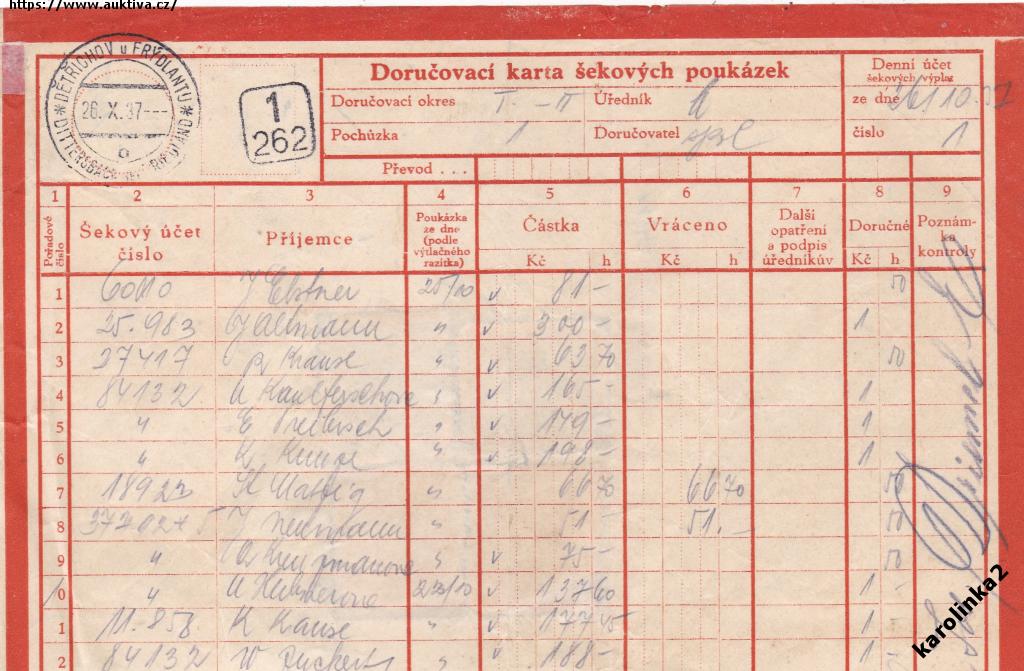 https://www.auktiva.cz/
DĚTŘICHOV u FRÝDLANTU
26.X.37---
DITTERSBACH
1
262
Doručovací karta šekových poukázek
Denní účet
šekových výplat
Doručovací okres I.-II Úředník
ze dne 26/10.37
Pochůzka 1 Doručovatel
číslo 1
Převod . . .
1 2 3 4 5 6 7 8 9
Pořadové číslo
Šekový účet číslo
Příjemce
Poukázka ze dne (podle výtlačného razítka)
Částka
Vráceno
Další opatření a podpis úředníkův
Doručné
Poznámka kontroly
Kč h Kč h Kč h
1 60110 J Elstner 25/10 v 81 – 50
2 25.983 J Altmann " v 300 – 1
3 37417 Krause " v 63 70 50
4 84132 v 165 – 1
5 " E " v 149 – 1
6 " K " v 198 – 1
7 " 66 70 66 70 50
8 J Neumann " 51 – 51. – 50
9 " " v 75 – 50
10 " v 137 60 1 –
1 11.853 K Kause " v 177 45 1
2 84132 W " v 188 – 1
karolinka2